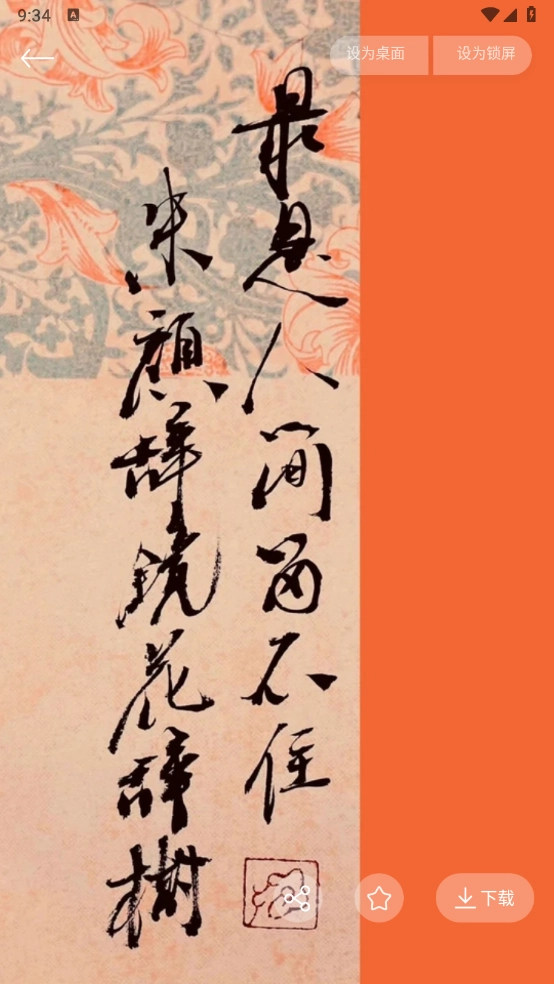 9:34
A
设为桌面
设为锁屏
最是人间留不住
朱颜辞镜花辞树
下载